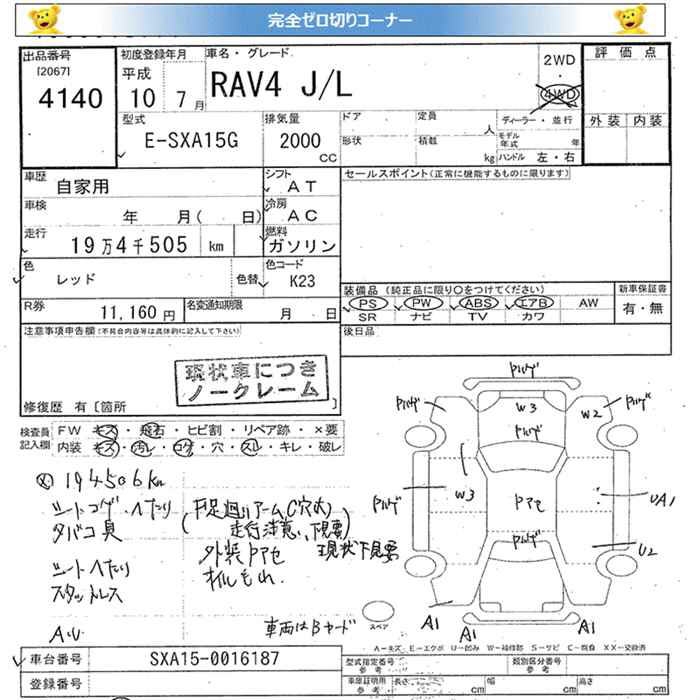 完全ゼロ切りコーナー
出品番号
[2067]
4140
初度登録年月
平成
10 7 月
車名・グレード
RAV4 J/L
2WD
4WD
評価点
外装 内装
型式
E-SXA15G
排気量
2000
CC
ドア
定員
人
ディーラー・並行
モデル年式 年
形状
積載
kg
ハンドル 左・右
車歴
自家用
シフト
AT
車検
年 月( 日)
冷房
AC
走行
19万4千505 km
燃料
ガソリン
色
レッド
色替
色コード
K23
R券
11,160 円
名変通知期限
月 日
セールスポイント(正常に機能するものに限ります)
装備品(純正品に限り○をつけてください)
PS PW ABS エアB AW
SR ナビ TV カワ
新車保証書
有・無
後日品
注意事項申告欄(不具合内容等は具体的に記入して下さい)
現状車につき
ノークレーム
修復歴 有〔箇所 〕
検査員
記入欄
FW キズ・飛石・ヒビ割・リペア跡・×要
内装 キズ・汚レ・コゲ・穴・スレ・キレ・破レ
194506km
シートコゲ・ヘたり
タバコ臭
シートヘたり
スタッドレス
A.U
(下足廻りアームC穴大
走行注意、下見要)
外装ドアセ 現状下見要
オイルもれ.
車両はBヤード
ドルゲ
ドルゲ
W3
W2
ドルゲ
ドルゲ
ドルゲ
W3
ドアセ
UA1
ドルゲ
U2
スペア
A1
A1
A1
A−キズ E−エクボ U−凹み W−補修跡 S−サビ C−腐食 XX−交換済
車台番号
SXA15-0016187
登録番号
型式指定番号
参考
類別区分番号
参考
車庫証明用
参考
長さ cm
幅 cm
高さ cm